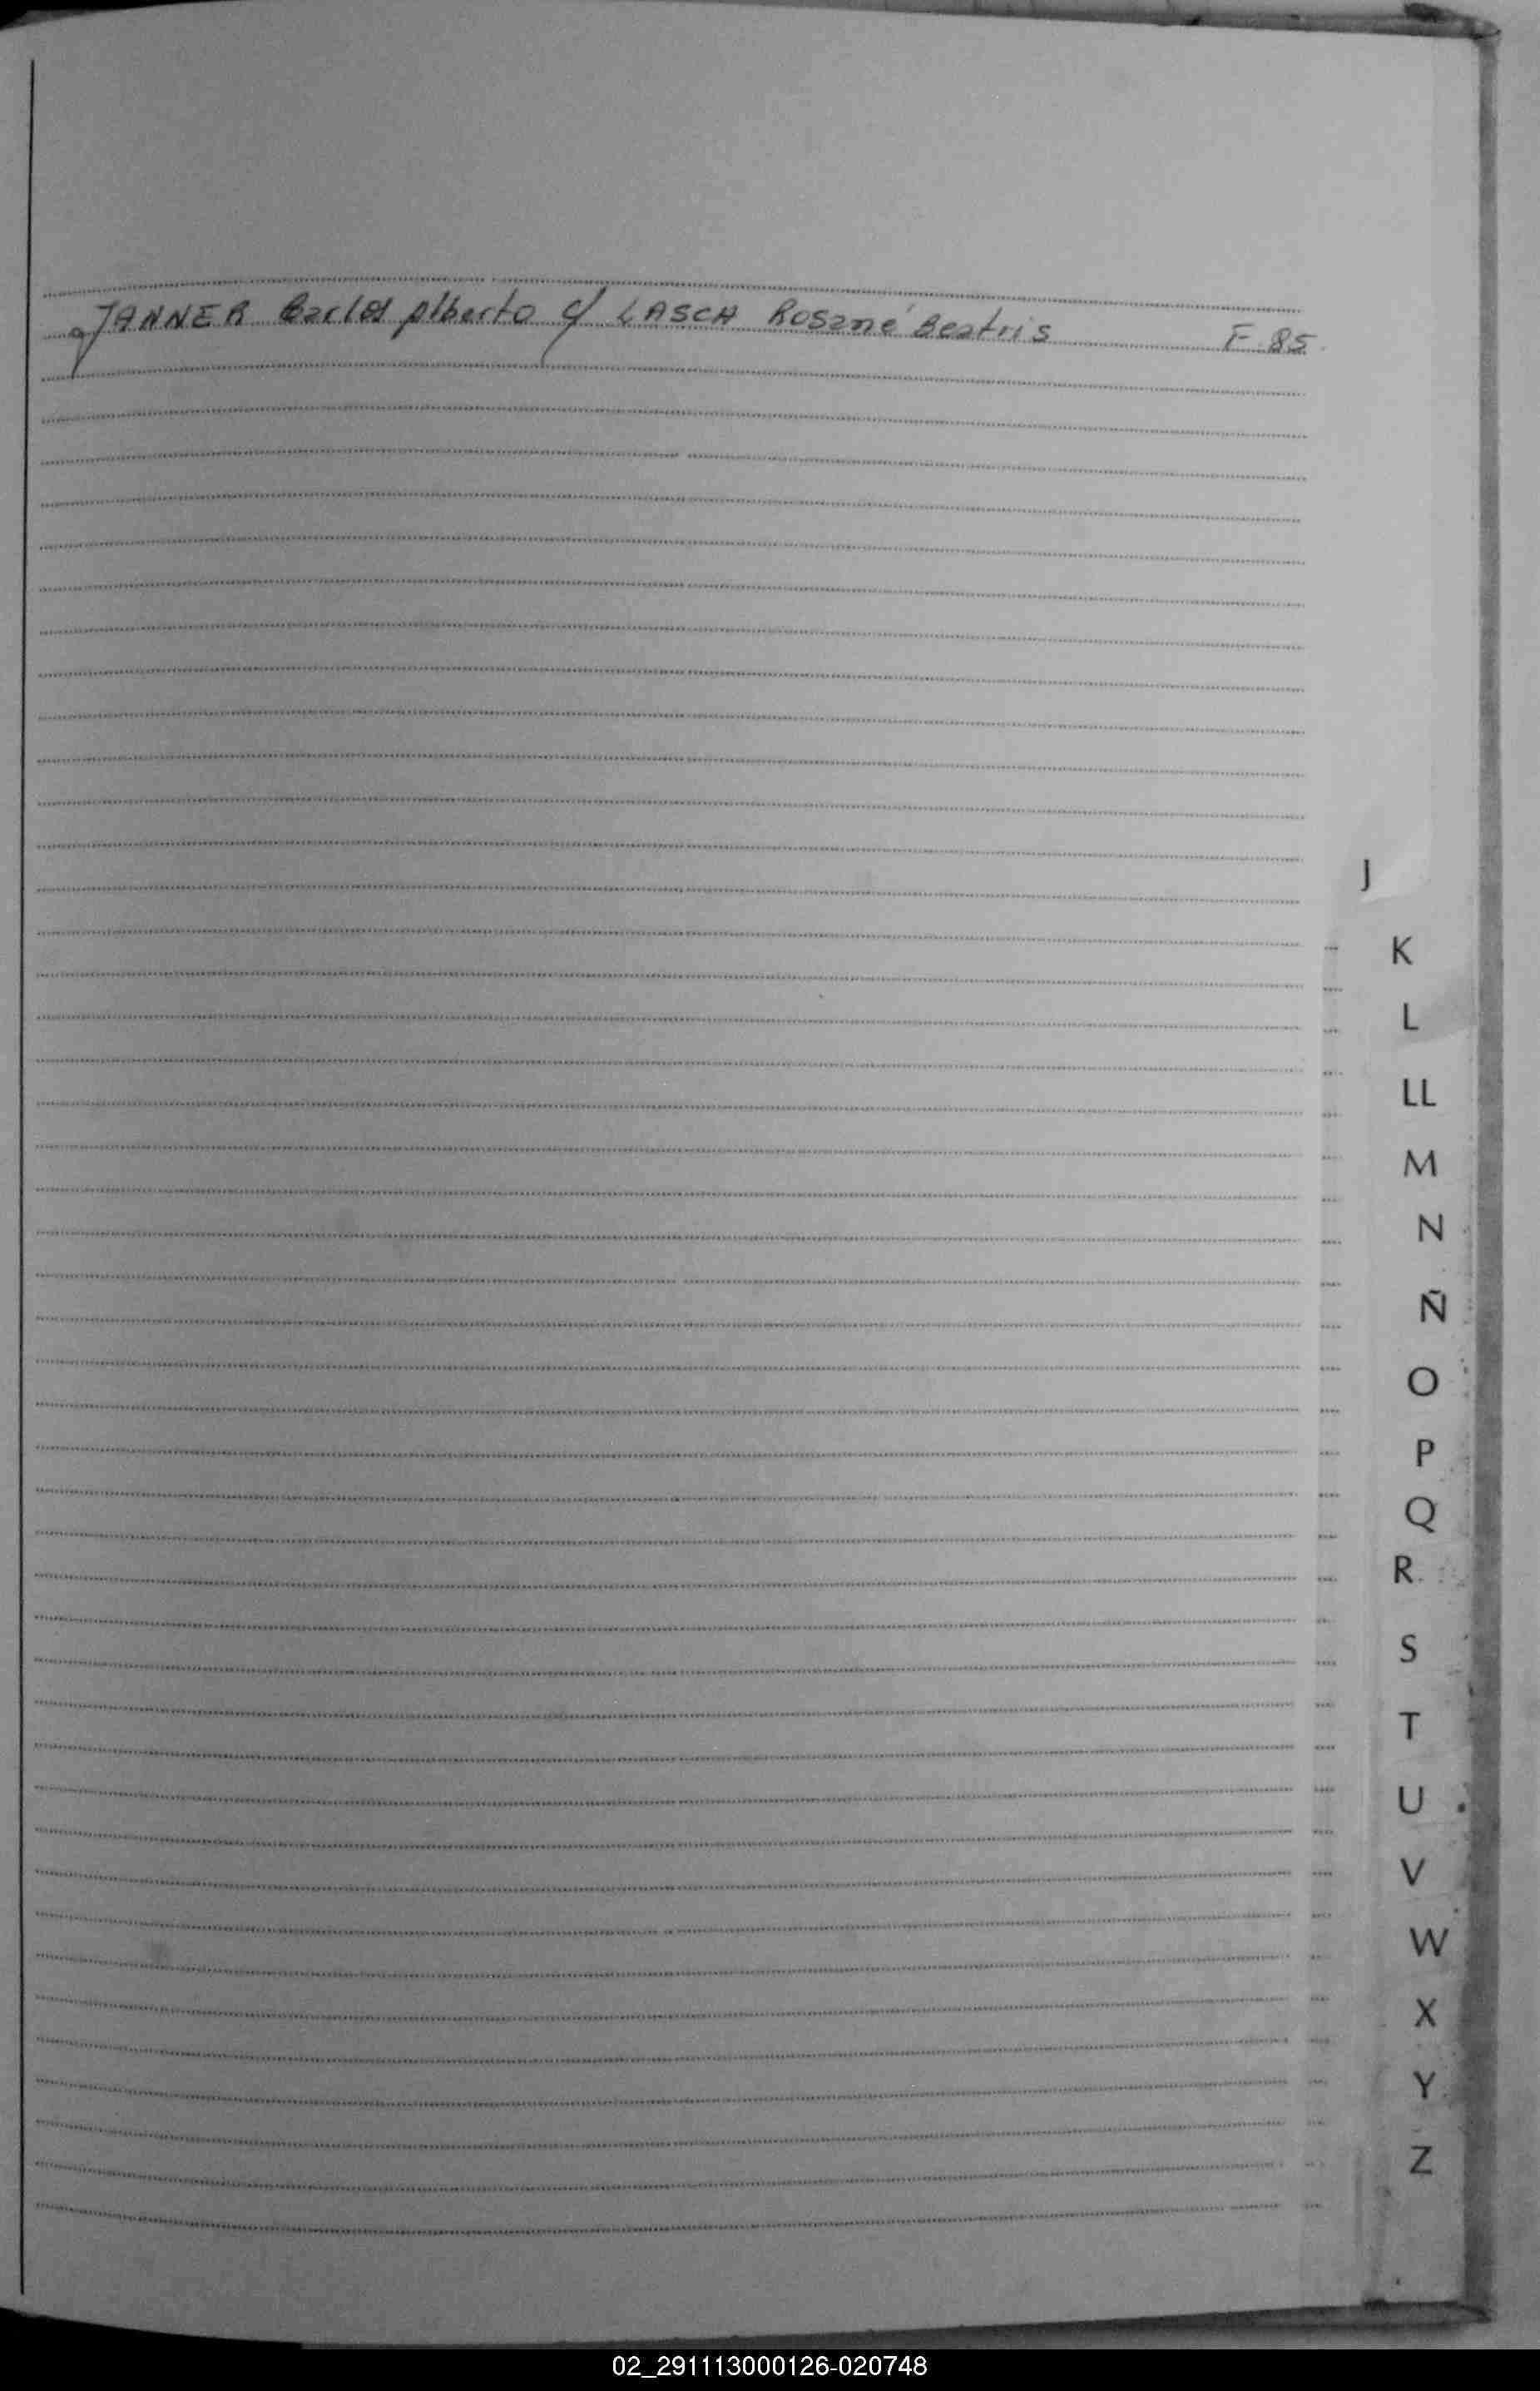 JANNER Carlos Alberto c/ LASCH Rosané Beatris F. 85.
J
K
L
LL
M
N
Ñ
O
P
Q
R
S
T
U
V
W
X
Y
Z
02_291113000126-020748